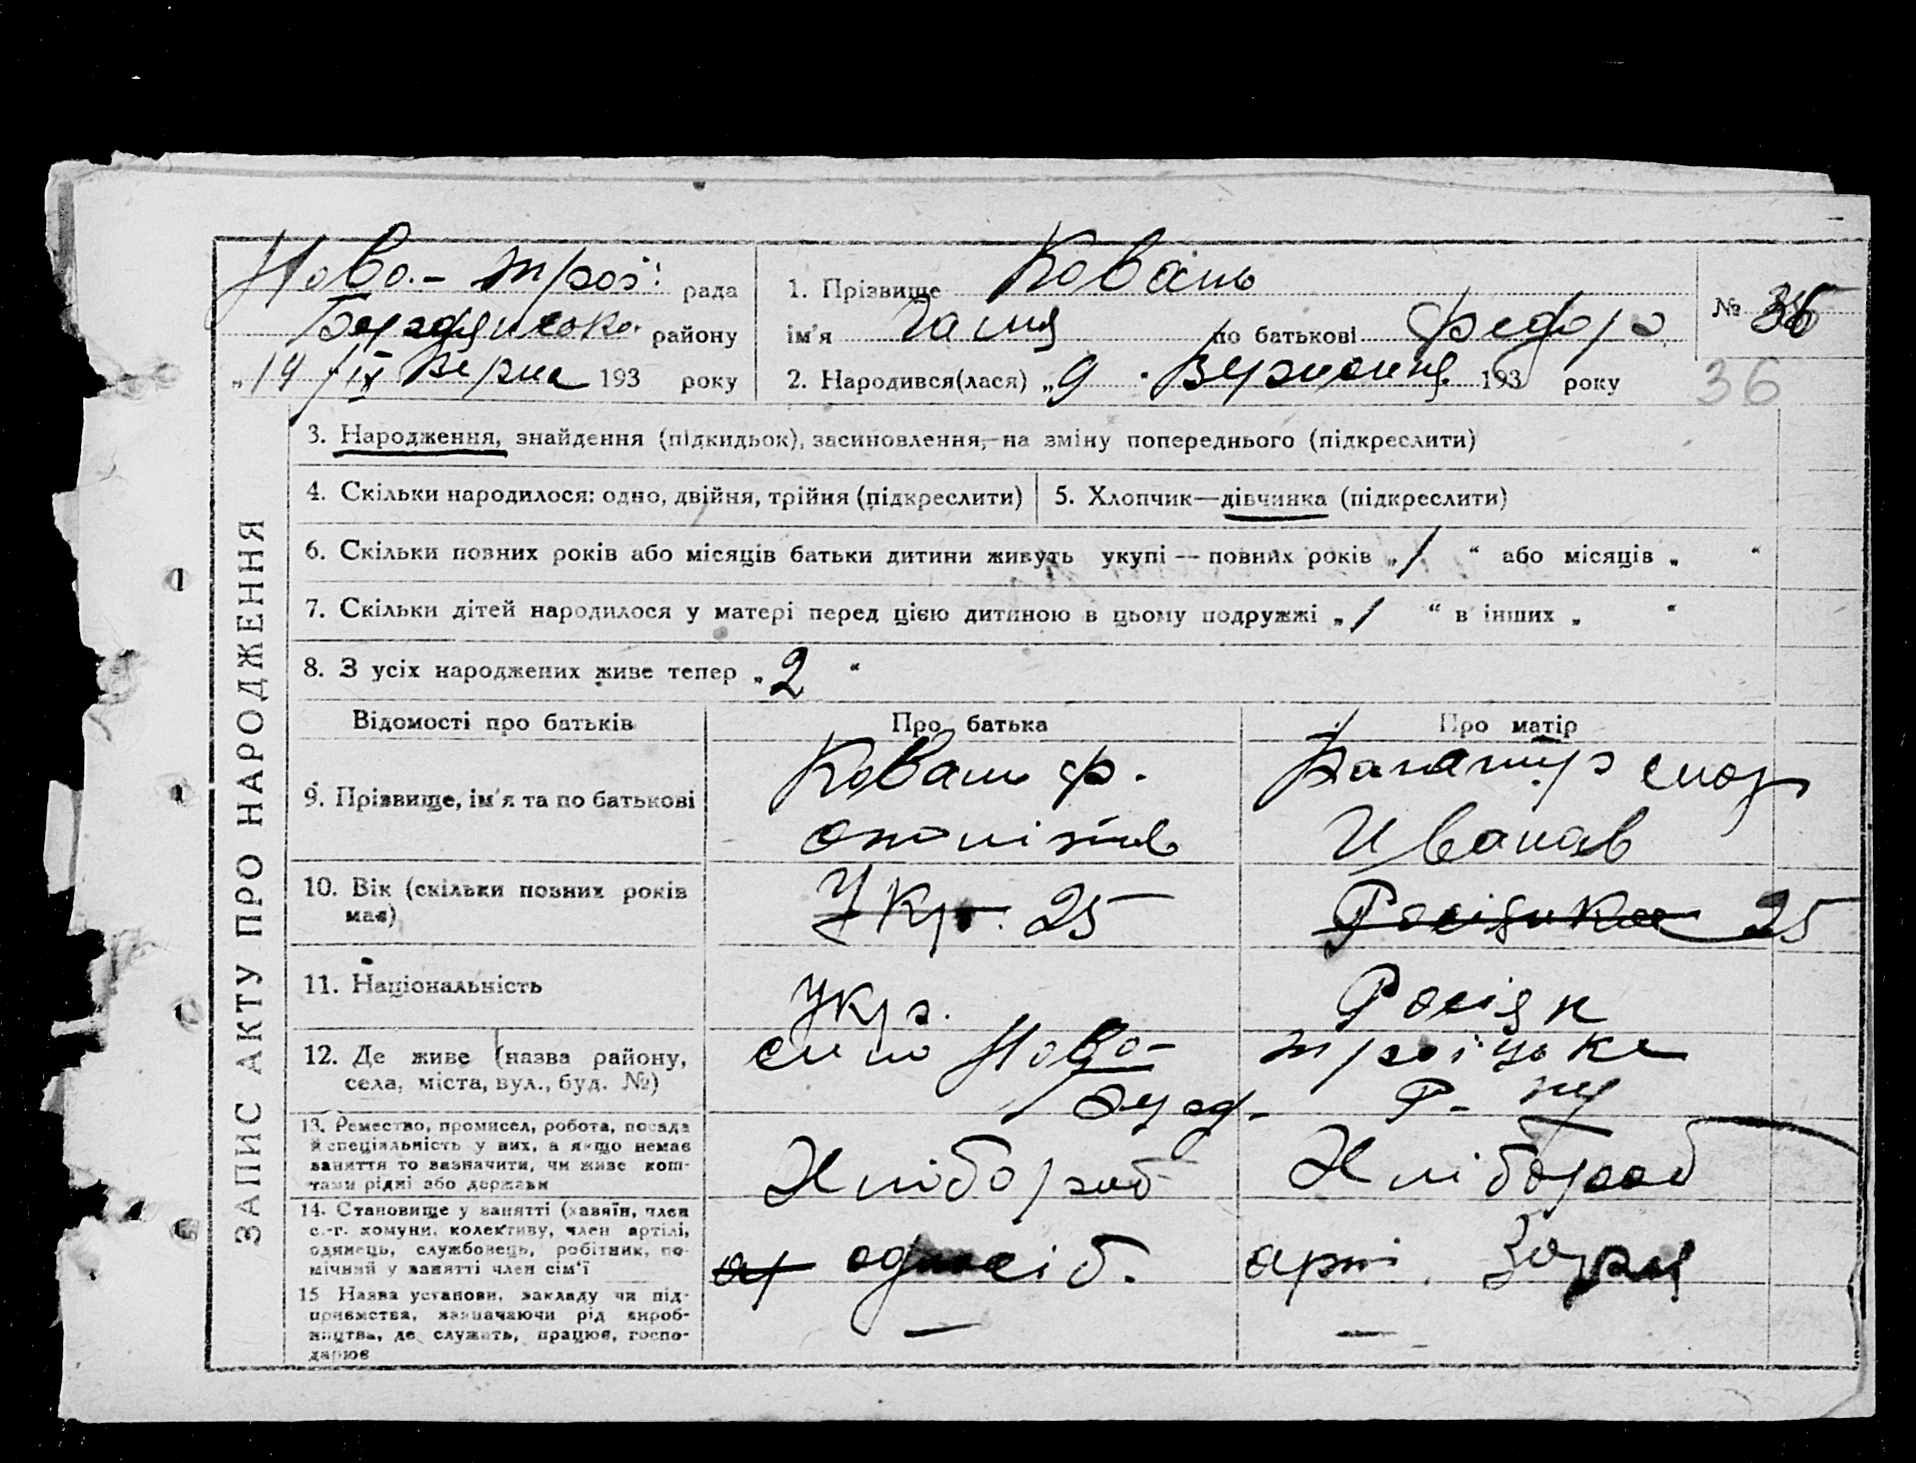 Ново-трої: рада
району
„14/IX Верес 193 року
1. Прізвище Коваль
ім'я Галя по батькові Федоро
2. Народився(лася) „9 Вересня 193 року
№ 36
36
ЗАПИС АКТУ ПРО НАРОДЖЕННЯ
3. Народження, знайдення (підкидьок), засиновлення, на зміну попереднього (підкреслити)
4. Скільки народилося: одно, двійня, трійня (підкреслити)
5. Хлопчик—дівчинка (підкреслити)
6. Скільки повних років або місяців батьки дитини живуть укупі — повних років „1 “ або місяців „ “
7. Скільки дітей народилося у матері перед цією дитиною в цьому подружжі „1 “ в інших „ “
8. З усіх народжених живе тепер „2 “
Відомості про батьків
Про батька
Про матір
9. Прізвище, ім'я та по батькові
Коваль Ф.
Иванов
10. Вік (скільки повних років
має)
Укр. 25
Росіянка 25
11. Національність
Укр.
Росіян
12. Де живе (назва району,
села, міста, вул., буд. №)
село Ново-троіцьке
Р-ну
13. Ремество, промисел, робота, посада
й спеціяльність у них, а якщо немає
заняття то зазначити, чи живе кош-
тами рідні або держави
Хлібороб
Хлібороб
14. Становище у занятті (хазяїн, член
с.-г. комуни, колективу, член артілі,
одинець, службовець, робітник, по-
мічний у занятті член сім'ї
ар одноосіб.
арті. Зоря
15 Назва установи, закладу чи під-
приємства, зазначаючи рід вироб-
ництва, де служить, працює, госпо-
дарює
—
—